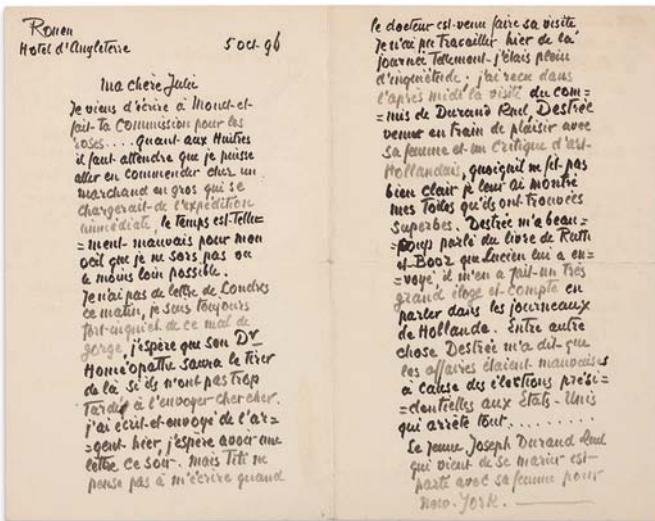 Rouen
Hotel d'Angleterre 5 oct. 96
Ma chère Julie
Je viens d'écrire à Monet et
fait ta Commission pour les
roses.... quant aux Huitres
il faut attendre que je puisse
aller en commender chez un
marchand en gros qui se
chargerait de l'expédition
immédiate, le temps est telle=
=ment mauvais pour mon
oeil que je ne sors pas ou
le moins loin possible.
Je n'ai pas de lettre de Londres
ce matin, je suis toujours
fort inquiet de ce mal de
gorge, j'espère que son Dr
Homéopathe saura le tirer
de là si ils n'ont pas trop
tardé à l'envoyer chercher.
j'ai écrit et envoyé de l'ar=
=gent hier, j'espère avoir une
lettre ce soir. Mais Titi ne
pense pas à m'écrire quand
le docteur est venu faire sa visite
Je n'ai pu travailler hier de la
journée tellement j'étais plein
d'inquiétude. j'ai recu dans
l'après midi la visite du com=
=mis de Durand Ruel, Destrée
venue en train de plaisir avec
sa femme et un Critique d'art
Hollandais, quoiqu'il ne fit pas
bien clair je leur ai montré
mes Toiles qu'ils ont trouvées
Superbes. Destrée m'a beau=
=coup parlé du livre de Ruth
et Booz que Lucien lui a en=
=voyé il m'en a fait un très
grand éloge et compte en
parler dans les journeaux
de Hollande. Entre autre
chose Destrée m'a dit que
les affaires étaient mauvaises
à cause des élections prési=
=dentielles aux Etats-Unis
qui arrête tout..........
Le jeune Joseph Durand Ruel
qui vient de se marier est
parti avec sa femme pour
New-York.